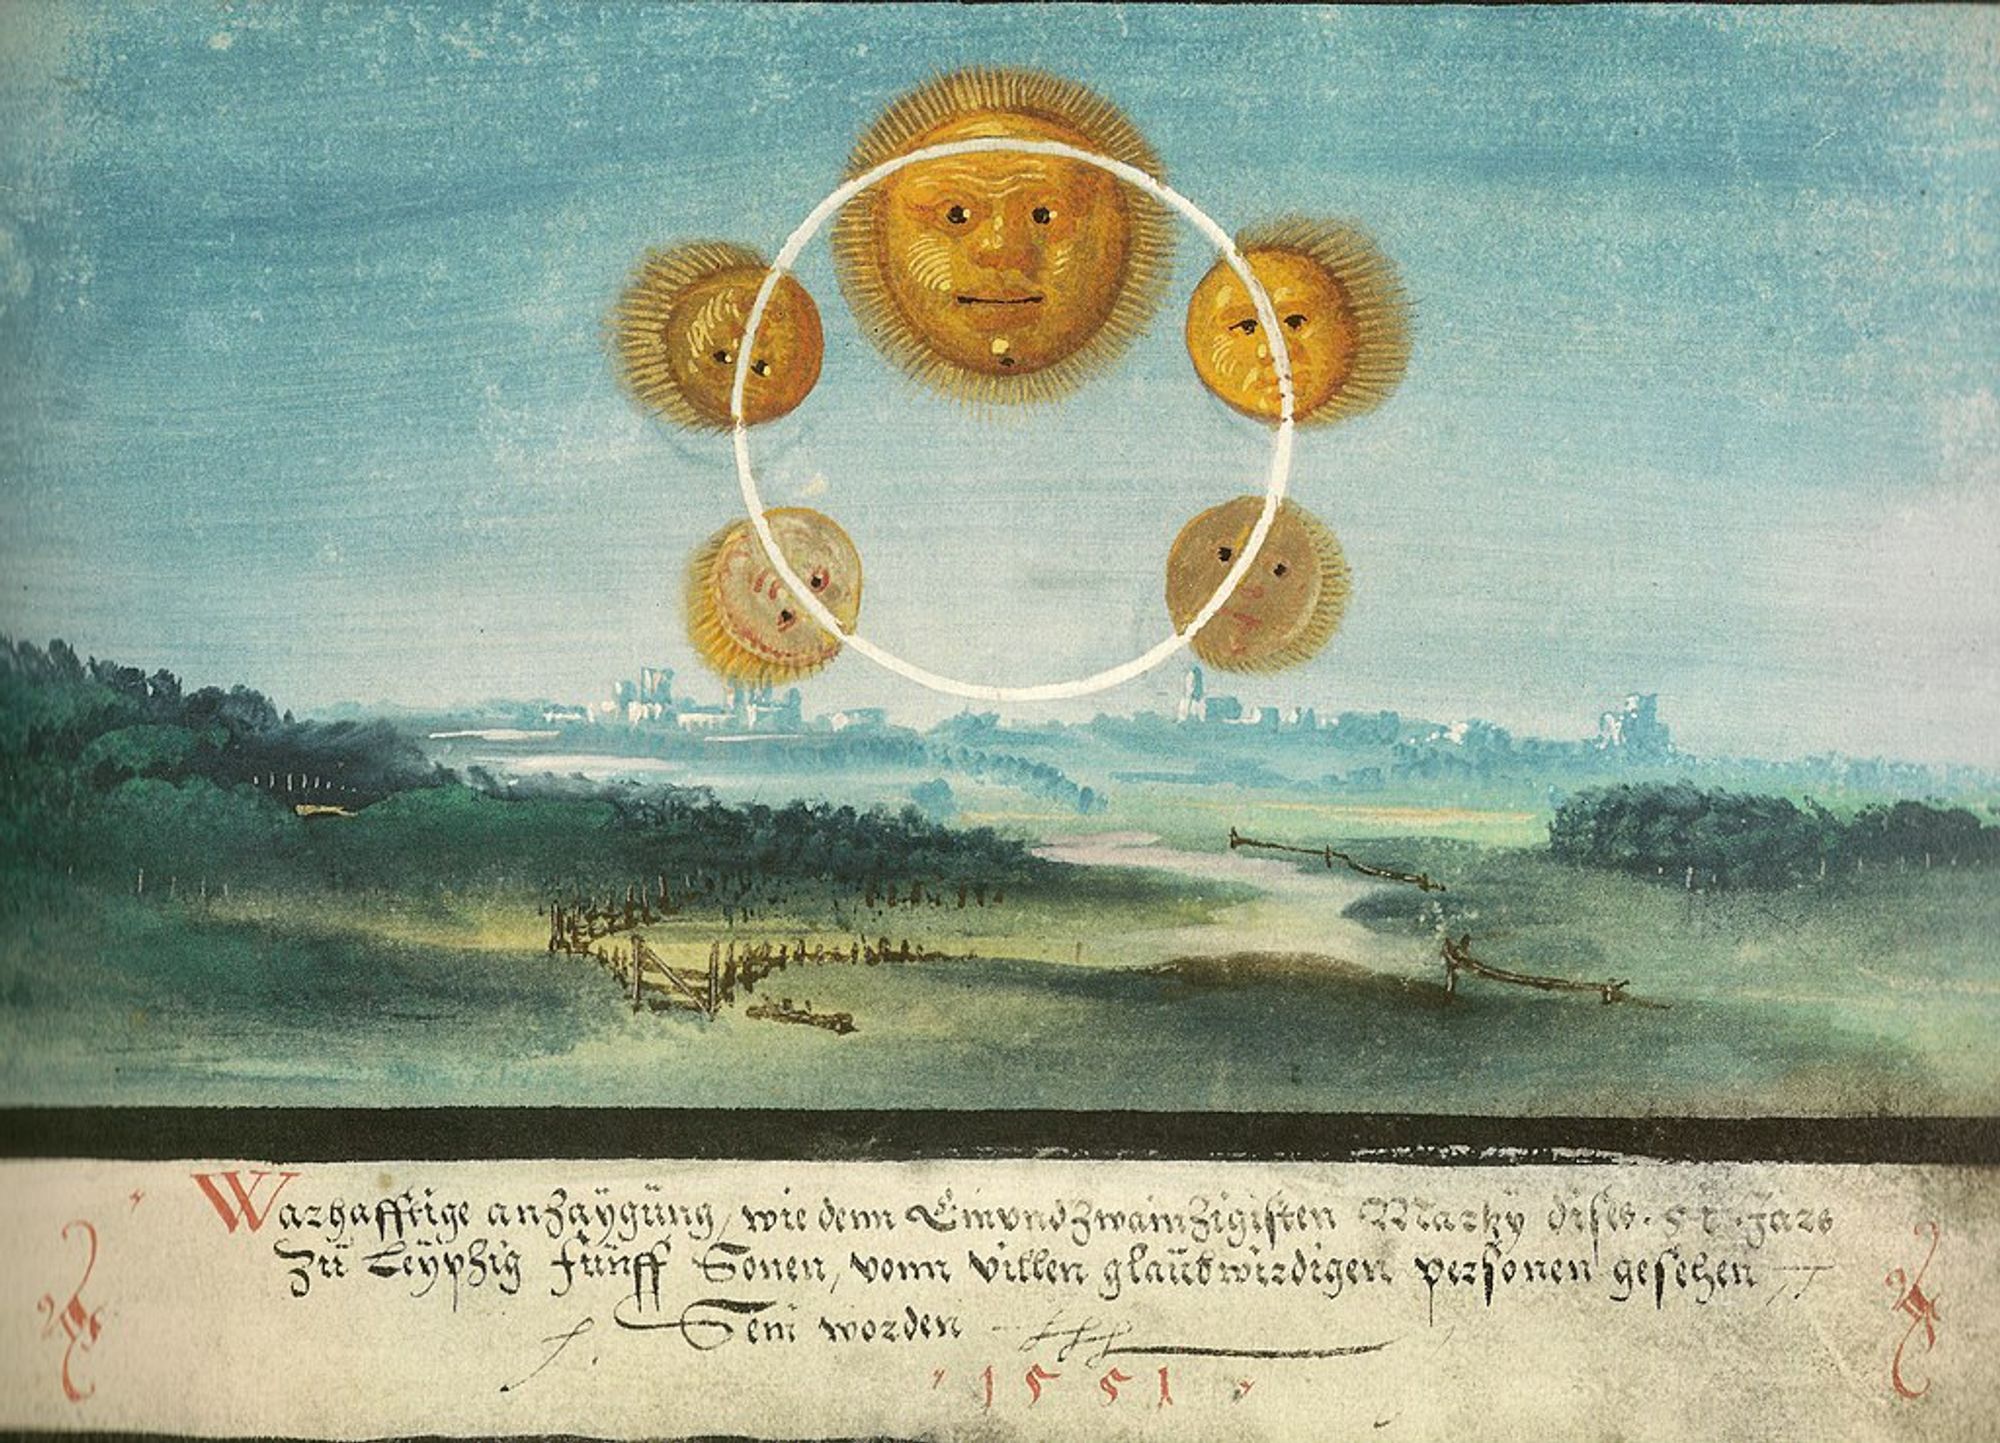 Warhafftige anzaÿgüng, wie denn Einvndzwainzigisten Martzÿ diss. 51. Jars
Zü Leÿpzig fünff Sonen, vonn villen glaübwirdigen personen gesehen
Sein worden
1551